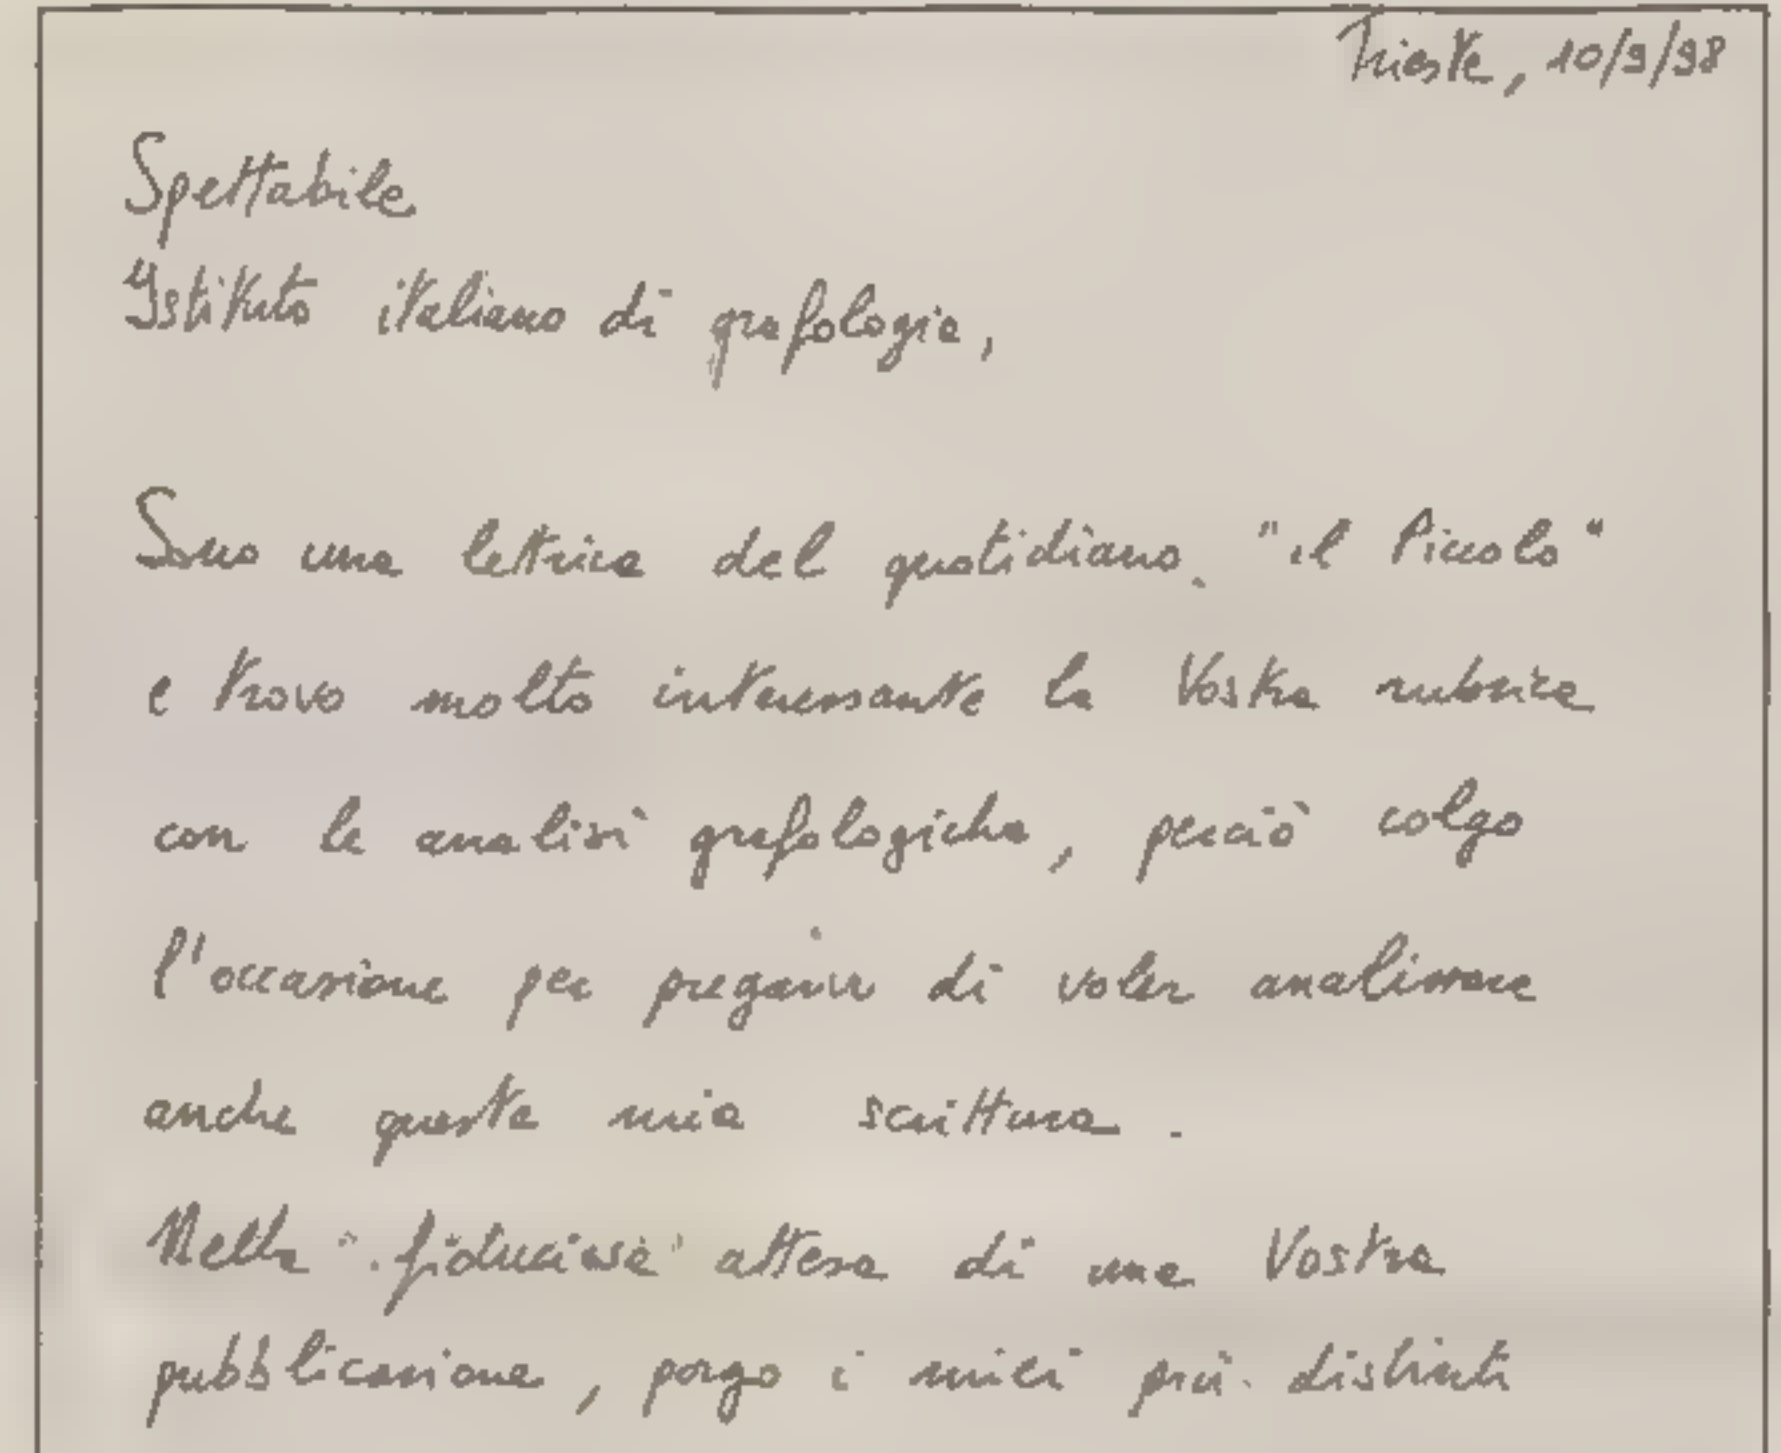 Trieste, 10/9/98
Spettabile
Istituto italiano di grafologia,
Sono una lettrice del quotidiano "il Piccolo"
e trovo molto interessante la Vostra rubrica
con le analisi grafologiche, perciò colgo
l'occasione per pregarvi di voler analizzare
anche questa mia scrittura.
Nella "fiduciosa" attesa di una Vostra
pubblicazione, porgo i miei più distinti